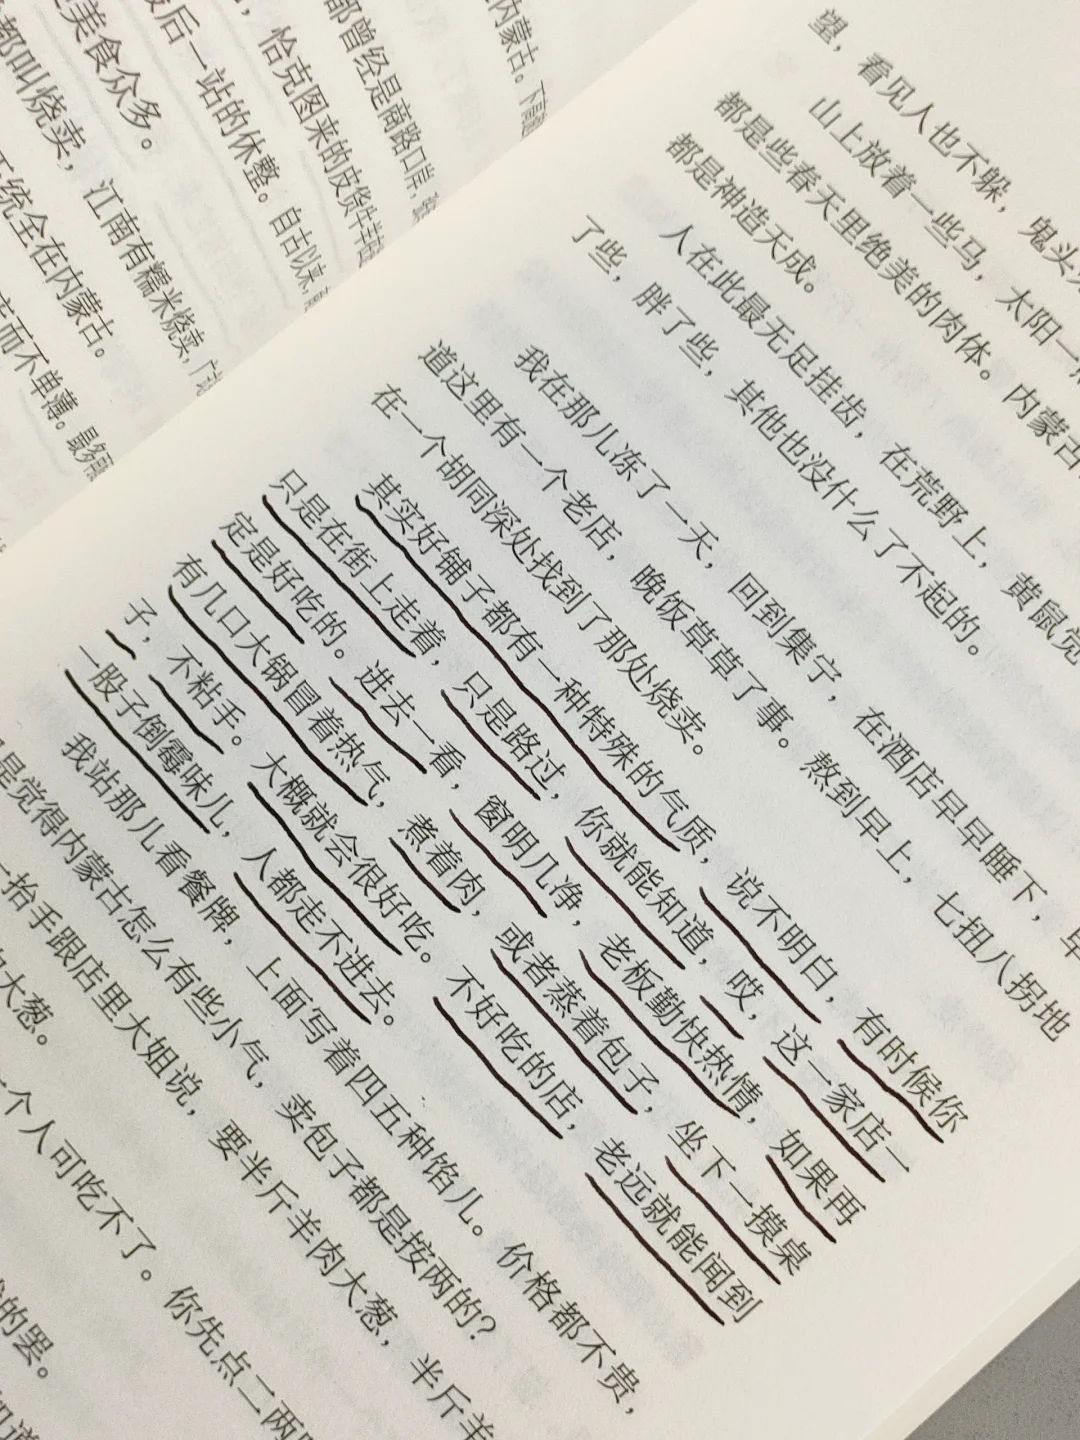 都曾经是商路口岸,
恰克图来的皮货牛羊
最后一站的休整。自古以来,
美食众多。
都叫烧卖,江南有糯米烧卖,广
统全在内蒙古。
而不单薄。最多
内蒙古。下
望,看见人也不躲,鬼头
山上放着一些马,太阳一
都是些春天里绝美的肉体。内蒙古
都是神造天成。
人在此最无足挂齿,在荒野上,黄鼠觉
了些,胖了些,其他也没什么了不起的。
我在那儿冻了一天,回到集宁,在酒店早早睡下,早
道这里有一个老店,晚饭草草了事。熬到早上,七扭八拐地
在一个胡同深处找到了那处烧卖。
其实好铺子都有一种特殊的气质,说不明白,有时候你
只是在街上走着,只是路过,你就能知道,哎,这一家店一
定是好吃的。进去一看,窗明几净,老板勤快热情,如果再
有几口大锅冒着热气,煮着肉,或者蒸着包子,坐下一摸桌
子,不粘手。大概就会很好吃。不好吃的店,老远就能闻到
一股子倒霉味儿,人都走不进去。
我站那儿看餐牌,上面写着四五种馅儿。价格都不贵,
是觉得内蒙古怎么有些小气,卖包子都是按两的?
一抬手跟店里大姐说,要半斤羊肉大葱,半斤羊
大葱。
一个人可吃不了。你先点二两
的罢。